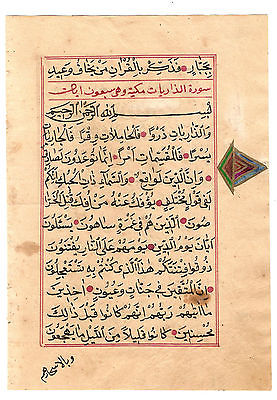 بجبار فذكر بالقرآن من يخاف وعيد
سورة الذاريات مكية وهي ستون آيات
بسم الله الرحمن الرحيم
والذاريات ذروا فالحاملات وقرا فالجاريات
يسرا فالمقسمات أمرا إنما توعدون لصادق
وإن الدين لواقع والسماء ذات الحبك إنكم
لفي قول مختلف يؤفك عنه من أفك قتل الخرا
صون الذين هم في غمرة ساهون يسئلون
أيان يوم الدين يوم هم على النار يفتنون
ذوقوا فتنتكم هذا الذي كنتم به تستعجلون
إن المتقين في جنات وعيون آخذين
ما آتيهم ربهم إنهم كانوا قبل ذلك
محسنين كانوا قليلا من الليل ما يهجعون
وبالأسحارهم